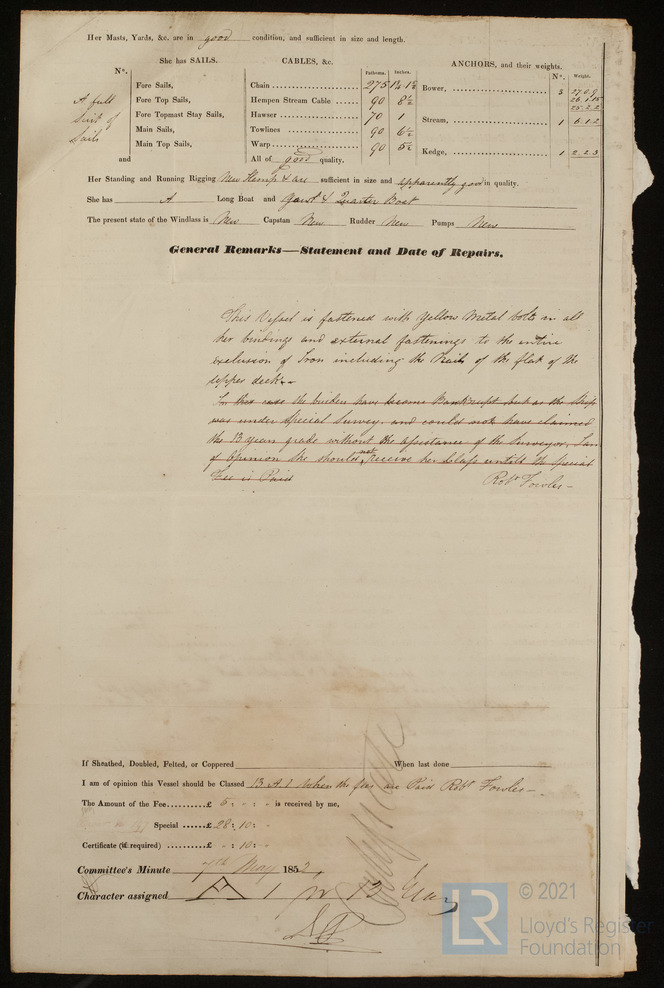 Her Masts, Yards, &c. are in good condition, and sufficient in size and length.
She has SAILS.
CABLES, &c.
ANCHORS, and their weights.
N°.
Fathoms. Inches.
N°. Weight.
A full
Suit of
Sails
Fore Sails,
Fore Top Sails,
Fore Topmast Stay Sails,
Main Sails,
Main Top Sails,
and
Chain 275
Hempen Stream Cable 90 8½
Hawser 70 1
Towlines 90 6½
Warp 90 5½
All of good quality.
Bower, 3 27.0.9
26.1.15
25.2.2
Stream, 1 6.1.2
Kedge, 1 2.2.3
Her Standing and Running Rigging New Hemp & are sufficient in size and apparently good in quality.
She has A Long Boat and & Quarter Boat
The present state of the Windlass is New Capstan New Rudder New Pumps New
General Remarks—Statement and Date of Repairs.
This Vessel is fastened with Yellow Metal bolts in all
her bindings and external fastenings to the entire
exclusion of Iron including the Nails of the flat of the
upper deck.
In this case the builders have become Bankrupt but as the Ship
was under Special Survey, and could not have claimed
the 13 Years grade without the assistance of the Surveyor, I am
of Opinion She should not receive her Class until the Special
Fee is Paid
Robt Fowles
If Sheathed, Doubled, Felted, or Coppered When last done
I am of opinion this Vessel should be Classed 13 A.1 When the fees are Paid Robt Fowles
The Amount of the Fee £ 5 : - : - is received by me,
Special £ 28 : 10 : -
Certificate (if required) £ - : 10 : -
Committee's Minute 7th May 1852
Character assigned A 1 13 Years
LR
© 2021
Lloyd's Register
Foundation